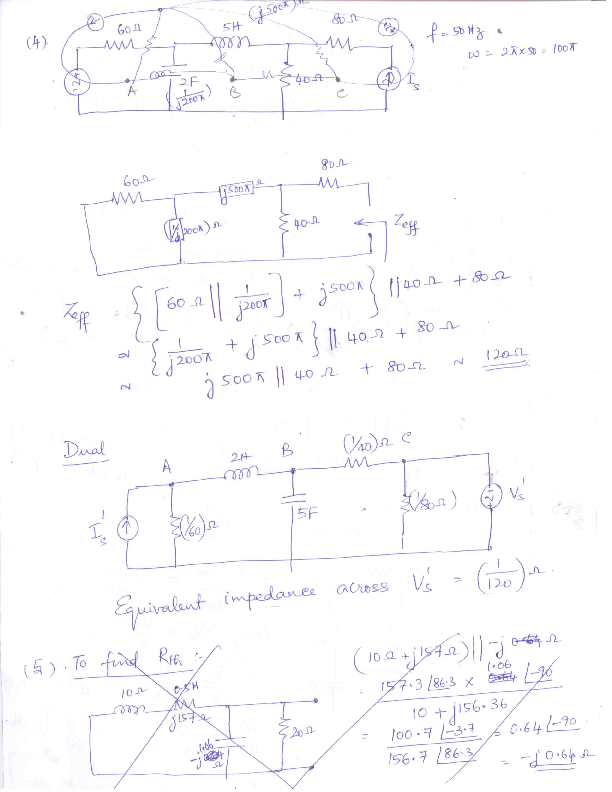 (4)
60Ω
5H
(j500π)Ω
80Ω
f = 50 Hz.
ω = 2π×50 = 100π
A
2F
(1/j200π)
B
40Ω
C
I_s
60Ω
j500π Ω
80Ω
(1/j200π) Ω
40Ω
Z_eff
Z_eff = { [ 60Ω || 1/j200π ] + j500π } || 40Ω + 80Ω
≈ { 1/j200π + j500π } || 40Ω + 80Ω
≈ j500π || 40Ω + 80Ω ≈ 120Ω
Dual
A
2H
B
(1/40)Ω
C
I_s'
(1/60)Ω
5F
(1/80Ω)
V_s'
Equivalent impedance across V_s' = (1/120) Ω.
(5). To find R_Th :-
10Ω
0.5H
j157Ω
1.06
-j
Ω
20Ω
(10Ω + j157Ω) || -j Ω
157.3 ∠86.3 × 1.06 ∠-90
10 + j156.36
= 100.7 ∠-3.7 / 156.7 ∠86.3 = 0.64 ∠-90
= -j0.64Ω